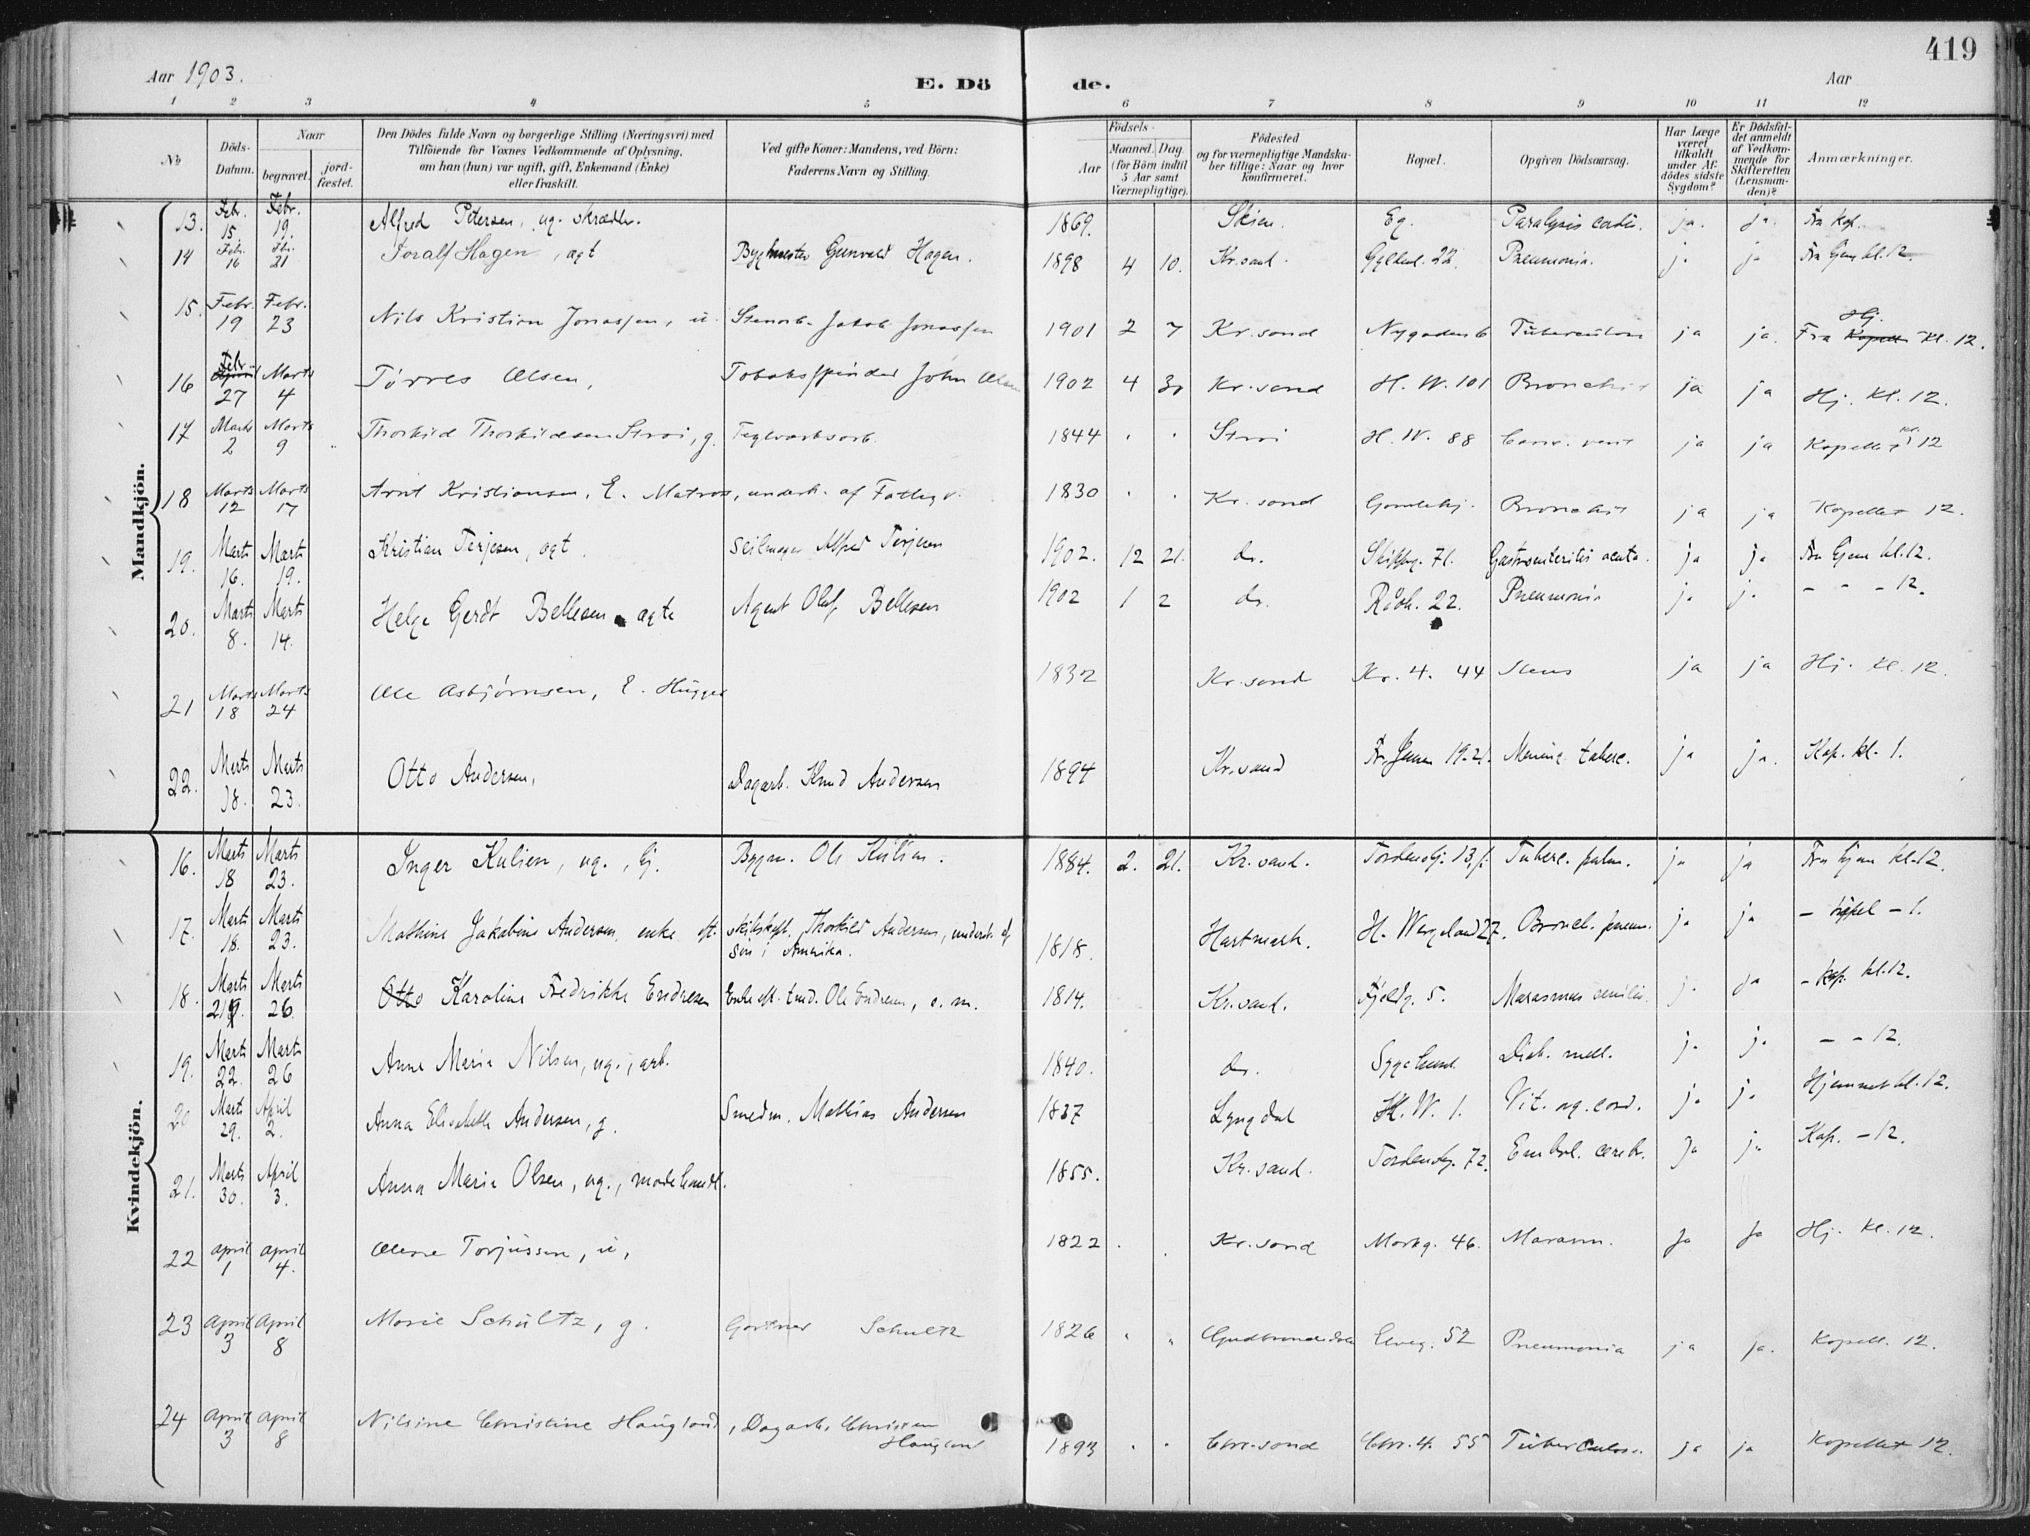 419
Aar 1903.
E. Dö de.
Aar
1 2 3 4 5 6 7 8 9 10 11 12
No
Döds-Datum.
Naar
begravet.
jord-fæstet.
Den Dödes fulde Navn og borgerlige Stilling (Næringsvei) med
Tilföiende for Voxnes Vedkommende af Oplysning,
om han (hun) var ugift, gift, Enkemand (Enke)
eller fraskilt.
Ved gifte Koner: Mandens, ved Börn:
Faderens Navn og Stilling.
Födsels-
Aar
Maaned Dag
(for Börn indtil
5 Aar samt
Værnepligtige).
Födested
og for værnepligtige Mandska-
ber tillige: Naar og hvor
konfirmeret.
Bopæl.
Opgiven Dödsaarsag.
Har Læge
været
tilkaldt
under Af-
dödes sidste
Sygdom?
Er Dödsfal-
det anmeldt
af Vedkom-
mende for
Skifteretten
(Lensman-
den)?
Anmærkninger.
Mandkjön.
13. Febr. 15 Febr. 19. Alfred Petersen, ug. skrædder. 1869. Skien. Eg. Paralysis cordis. ja. ja. Fra Kap.
14 Febr. 16 Febr. 21 Toralf Hagen, ægt Bygmester Gunvald Hagen. 1898 4 10. Kr.sand. Gyldenl. 22. Pneumonia. j. ja Fra Hjem kl. 12.
15. Febr. 19 Febr. 23 Nils Kristian Jonassen, u. Stenarb. Jakob Jonassen 1901 2 7 Kr.sand Nygaden 6 Tuberculose ja ja. Fra Kapell Hj. Kl. 12.
16 Febr. 27 Marts 4 Tørres Olsen, Tobaksspinder John Olsen 1902 4 30 Kr.sand H. W. 101 Bronchit ja ja Hj. Kl. 12.
17 Marts 2 Marts 9 Thorkild Thorkildsen Strai, g. Teglverksarb. 1844 Strai H. W. 88 ja ja Kapellet kl. 12
18 Marts 12 Marts 17 Arnt Kristiansen, E. Matros, underh. af Fattigv. 1830 Kr.sand Gamlehj. Bronchit ja ja Kapellet 12.
19. Marts 16. Marts 19. Kristian Terjesen, ægt. Seilmager Alfred Terjesen 1902. 12 21. do. Skippg. 71. Gastroenteritis acuta. ja ja Fra Hjem kl. 12.
20. Marts 8. Marts 14. Helge Gerdt Bellesen ægte Agent Oluf Bellesen 1902 1 2 do. Rådh. 22. Pneumonia j. j. - - - 12.
21 Marts 18 Marts 24 Ole Asbjørnsen, E. Hugger 1832 Kr.sand Kr. 4. 44 ja ja Hj. Kl. 12.
22. Marts 18. Marts 23. Otto Andersen, Dagarb. Knud Andersen 1894 Kr.sand 19.21. Mening. tuberc. ja ja. Kap. kl. 1.
Kvindekjön.
16. Marts 18 Marts 23. Inger Kulien, ug., Bygm. Ole Kulien. 1884. 2. 21. Kr.sand. Tordenskj. 13. Tuberc. pulm. ja ja Fra hjem kl. 12.
17. Marts 18. Marts 23. Mathine Jakobine Andersen enke eft. skibskapt. Thorkild Andersen, underh. af
Søn i Amerika. 1818. Hartmark. H. Wergeland 27. Bronch. pneum. ja ja - kapel - 1.
18. Marts 21. Marts 26. Otto Karoline Fredrikke Endresen Enke eft. tmd. Ole Endresen, e. m. 1814. Kr.sand. Fjeldg. 5. Marasmus senilis. j. ja - kap. kl. 12.
19. Marts 22. Marts 26 Anne Marie Nilsen, ug., arb. 1840. do. Sygehuset. Diab. mell. j. j. - - 12.
20 Marts 29. April 2. Anna Elisabeth Andersen, g. Smedm. Mathias Andersen 1837 Lyngdal H. W. 1. Vit. og. cord. j. j. Hjemmet kl. 12.
21. Marts 30. April 3. Anna Marie Olsen, ug., modehandl. 1855. Kr.sand. Tordenskj. 72. Embol. cereb. ja ja Kap. - 12.
22 April 1 April 4. Olene Torjussen, u, 1822 Kr.sand Markg. 46. Marasm. Ja Ja Hj. Kl. 12.
23 April 3 April 8 Marie Schultz, g. Gartner Schultz 1826 Gudbrandsdalen Elveg. 52 Pneumonia ja ja. Kapell. 12.
24 April 3 April 8 Nilsine Christine Haugland, Dagarb. Christen
Haugland 1893 Chr.sand Chr. 4. 55 Tuberculose. ja ja Kapellet 12.